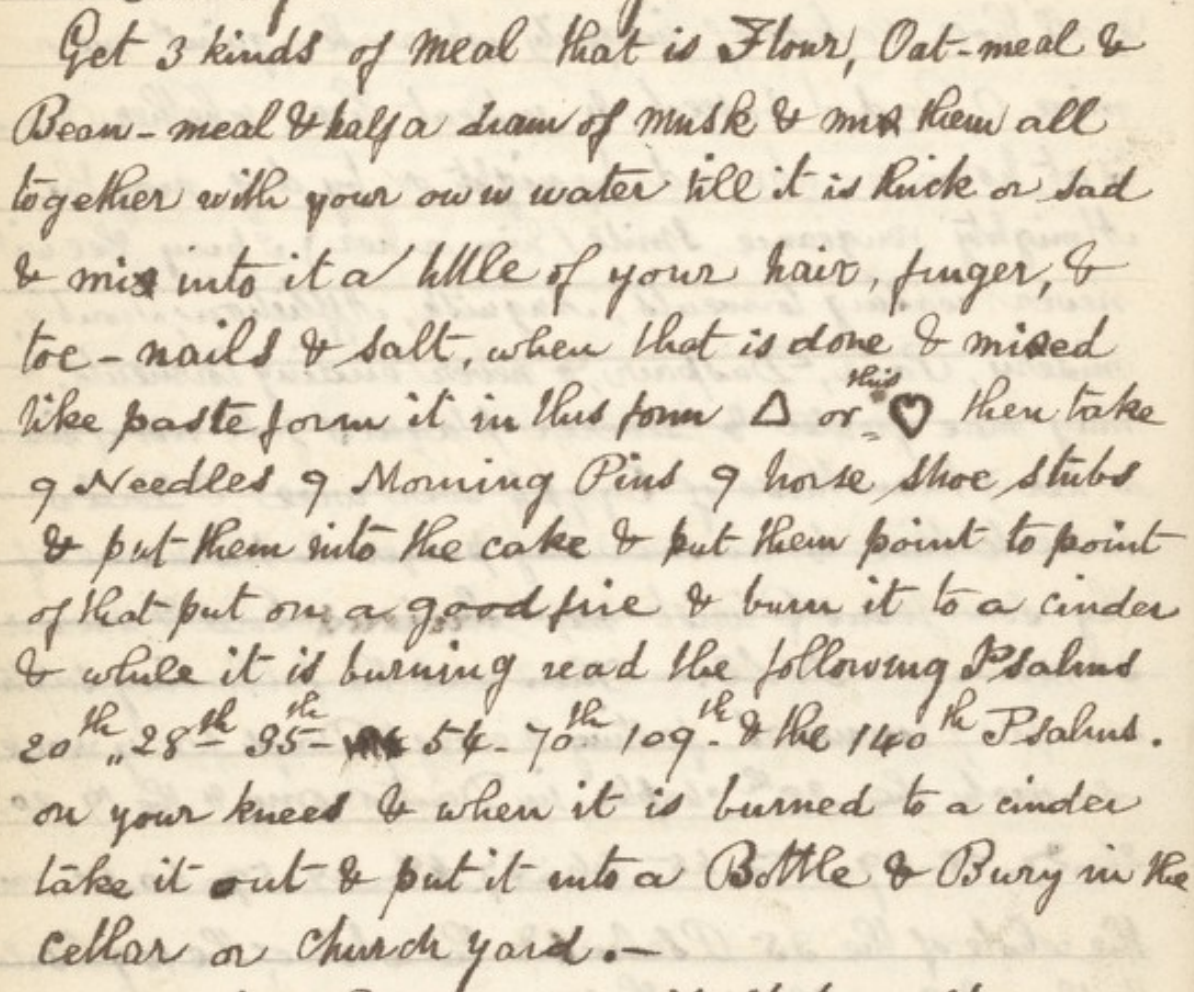 Get 3 kinds of meal that is Flour, Oat-meal &
Bean-meal & half a dram of musk & mix them all
together with your own water till it is thick or sad
& mix into it a little of your hair, finger, &
toe-nails & salt, when that is done & mixed
like paste form it in this form △ or this ♡ then take
9 Needles 9 Morning Pins 9 horse shoe stubs
& put them into the cake & put them point to point
of that put on a good fire & burn it to a cinder
& while it is burning read the following Psalms
20th „ 28th 35th 54 - 70th 109th & the 140th Psalms.
on your knees & when it is burned to a cinder
take it out & put it into a Bottle & Bury in the
cellar or church yard.—